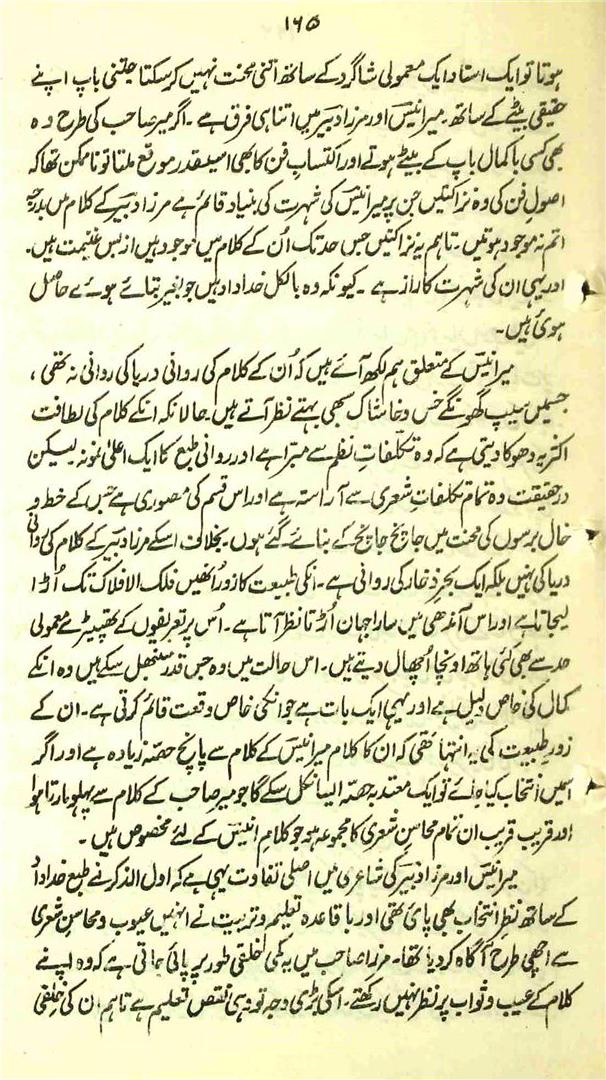 ۱۶۵
ہوتا تو ایک استاد ایک معمولی شاگرد کے ساتھ اتنی محنت نہیں کر سکتا جتنی باپ اپنے
حقیقی بیٹے کے ساتھ۔ میر انیسؔ اور مرزا دبیرؔ میں اتنا ہی فرق ہے۔ اگر میر صاحب کی طرح وہ
بھی کسی با کمال باپ کے بیٹے ہوتے اور اکتساب فن کا بھی اسیقدر موقع ملتا تو نا ممکن تھا کہ
اصولِ فن کی وہ نزاکتیں جن پر میر انیسؔ کی شہرت کی بنیاد قائم ہے مرزا دبیرؔ کے کلام میں بدرجہ
اتم نہ موجود ہوتیں۔ تاہم یہ نزاکتیں جس حد تک اُن کے کلام میں موجود ہیں از بس غنیمت ہیں۔
اور یہی ان کی شہرت کا راز ہے۔ کیونکہ وہ بالکل خداداد ہیں جو بغیر بتائے ہوئے حاصل
ہوئی ہیں۔
میر انیسؔ کے متعلق ہم لکھ آئے ہیں کہ اُن کے کلام کی روانی دریا کی روانی نہ تھی ،
جسمیں سیپ گھونگے خس و خاشاک بھی بہتے نظر آتے ہیں۔ حالانکہ انکے کلام کی لطافت
اکثر یہ دھوکا دیتی ہے کہ وہ تکلفاتِ نظم سے مبرا ہے اور روانی طبع کا ایک اعلیٰ نمونہ لیکن
در حقیقت وہ تمام تکلفات شعری سے آراستہ ہے اور اس قسم کی مصوری ہے جس کے خط و
خال برسوں کی محنت میں جانچ جانچ کے بنائے گئے ہوں۔ بخلاف اسکے مرزا دبیرؔ کے کلام کی روانی
دریا کی نہیں بلکہ ایک بحرِ ذخار کی روانی ہے۔ انکی طبیعت کا زور اُنھیں فلک الافلاک تک اُڑا
لیجاتا ہے اور اس آندھی میں سارا جہان اُڑتا نظر آتا ہے۔ اُس پر تعریفوں کے تھپیڑے معمولی
حد سے بھی کئی ہاتھ اونچا اُچھال دیتے ہیں۔ اس حالت میں وہ جس قدر سنبھل سکے ہیں وہ انکے
کمال کی خاص دلیل ہے اور یہی ایک بات ہے جو انکی خاص وقعت قائم کرتی ہے۔ ان کے
زور طبیعت کی یہ انتہا تھی کہ ان کا کلام میر انیسؔ کے کلام سے پانچ حصّہ زیادہ ہے اور اگر
اسمیں انتخاب کیا جائے تو ایک معتد بہ حصّہ ایسا نکل سکے گا جو میر صاحب کے کلام سے پہلو مارتا ہوا
اور قریب قریب ان تمام محاسنِ شعری کا مجموعہ ہو جو کلامِ انیسؔ کے لئے مخصوص ہیں۔
میر انیسؔ اور مرزا دبیرؔ کی شاعری میں اصلی تفاوت یہی ہے کہ اول الذکر نے طبع خداداد
کے ساتھ نظرِ انتخاب بھی پائی تھی اور باقاعدہ تعلیم و تربیت نے انہیں عیوب و محاسنِ شعری
سے اچھی طرح آگاہ کر دیا تھا۔ مرزا صاحب میں یہ کمی خلقی طور پر پائی جاتی ہے کہ وہ اپنے
کلام کے عیب و ثواب پر نظر نہیں رکھتے۔ اسکی بڑی وجہ تو وہی نقص تعلیم ہے تاہم ان کی خلقی